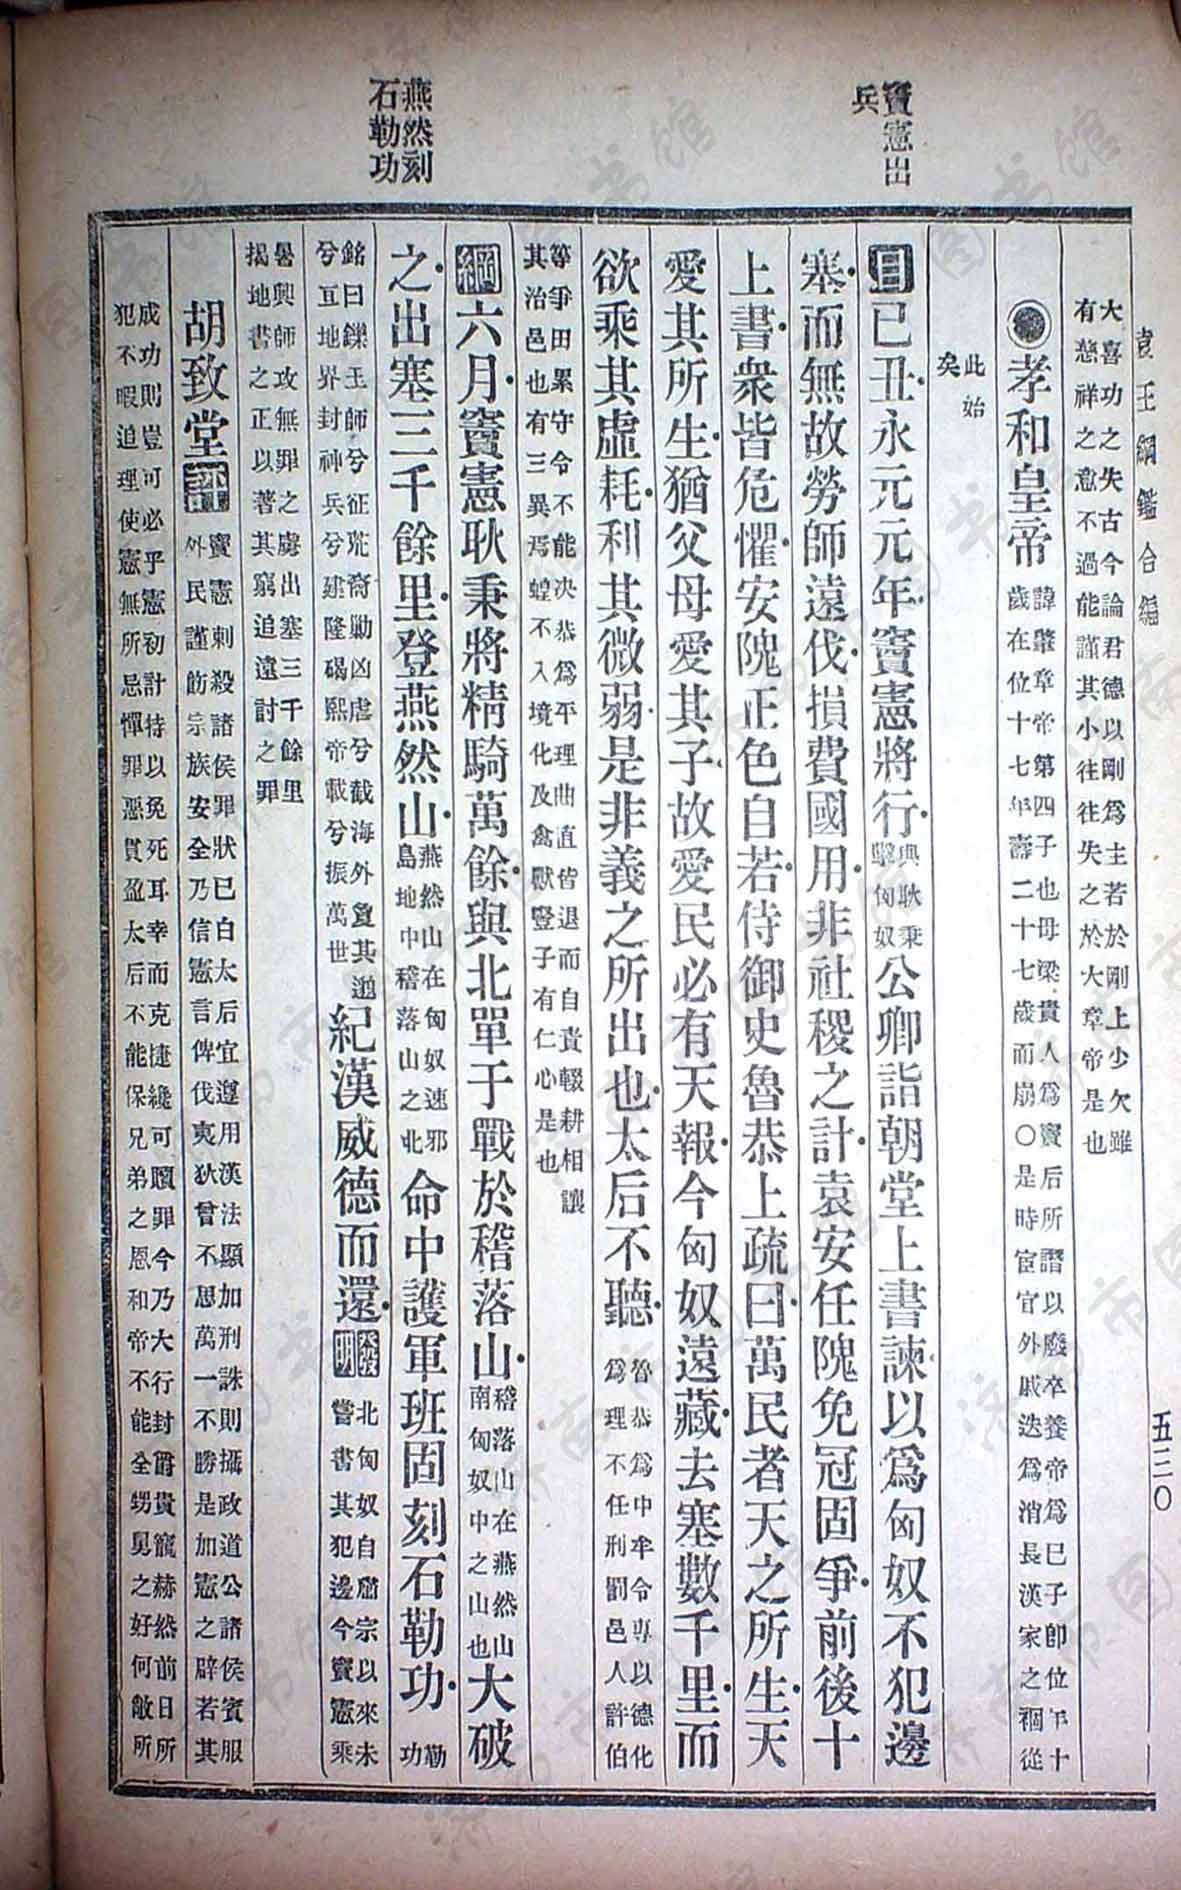 袁王綱鑑合編
五三〇
竇憲出
兵
燕然刻
石勒功
大喜功之失古今論君德以剛爲主若於剛上少欠雖
有慈祥之意不過能謹其小往往失之於大章帝是也
孝和皇帝
諱肇章帝第四子也母梁貴人爲竇后所譖以廢卒養帝爲已子卽位年十
歲在位十七年壽二十七歲而崩〇是時宦官外戚迭爲消長漢家之禍從
此始
矣
目已丑永元元年竇憲將行
與耿秉
擊匈奴
公卿詣朝堂上書諫以爲匈奴不犯邊
塞而無故勞師遠伐損費國用非社稷之計袁安任隗免冠固爭前後十
上書衆皆危懼安隗正色自若侍御史魯恭上疏曰萬民者天之所生天
愛其所生猶父母愛其子故愛民必有天報今匈奴遠藏去塞數千里而
欲乘其虛耗利其微弱是非義之所出也太后不聽
魯恭爲中牟令專以德化
爲理不任刑罰邑人許伯
等爭田累守令不能決恭爲平理曲直皆退而自責輟耕相讓
其治邑也有三異焉蝗不入境化及禽獸豎子有仁心是也
綱六月竇憲耿秉將精騎萬餘與北單于戰於稽落山
稽落山在燕然山
南匈奴中之山也
大破
之出塞三千餘里登燕然山
燕然山在匈奴速邪
島地中稽落山之北
命中護軍班固刻石勒功
勒
功
銘曰鑠王師兮征荒裔勦凶虐兮截海外敻其邈
兮亘地界封神兵兮建隆碣熙帝載兮振萬世
紀漢威德而還
發明
北匈奴自肅宗以來未
嘗書其犯邊今竇憲乘
暑興師攻無罪之虜出塞三千餘里
揭地書之正以著其窮追遠討之罪
胡致堂評
竇憲刺殺諸侯罪狀已白太后宜遵用漢法顯加刑誅則攝政道公諸侯賓服
外民謹飭宗族安全乃信憲言俾伐夷狄曾不思萬一不勝是加憲之辟若其
成功則豈可必乎憲初計持以免死耳幸而克捷纔可贖罪今乃大行封爵貴寵赫然前日所
犯不暇追理使憲無所忌憚罪惡貫盈太后不能保兄弟之恩和帝不能全甥舅之好何敵所